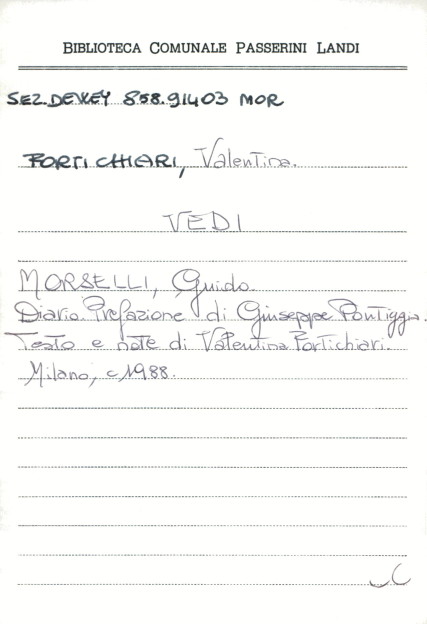 BIBLIOTECA COMUNALE PASSERINI LANDI
SEZ. DEWEY 858.91403 MOR
FORTICHIARI, Valentina.
VEDI
MORSELLI, Guido.
Diario. Prefazione di Giuseppe Pontiggia.
Testo e note di Valentina Fortichiari.
Milano, c1988.